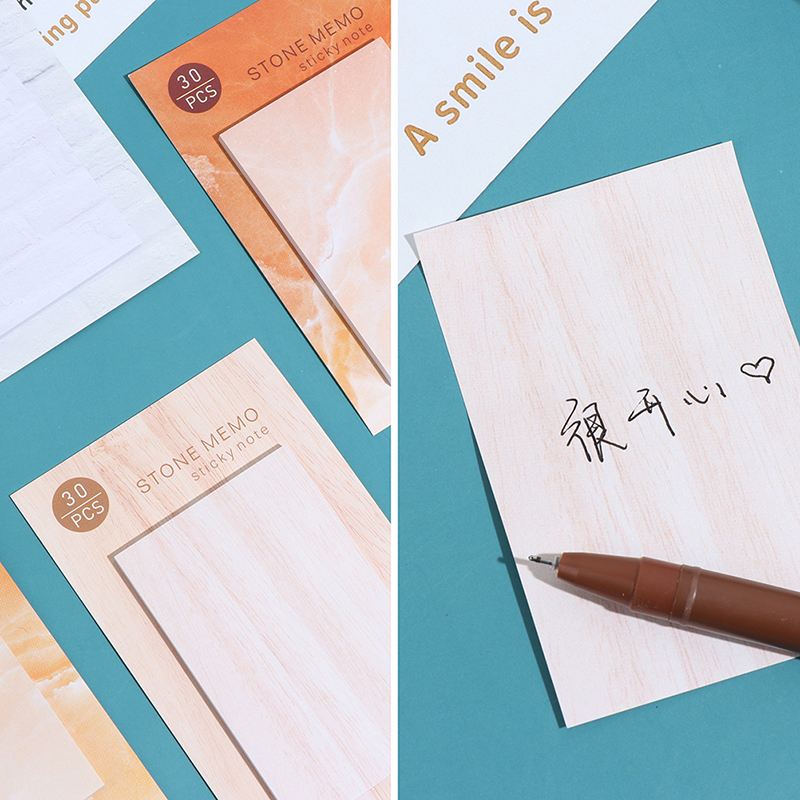 ing pu
30
PCS
STONE MEMO
sticky note
30
PCS
STONE MEMO
sticky note
A smile is
很开心♡